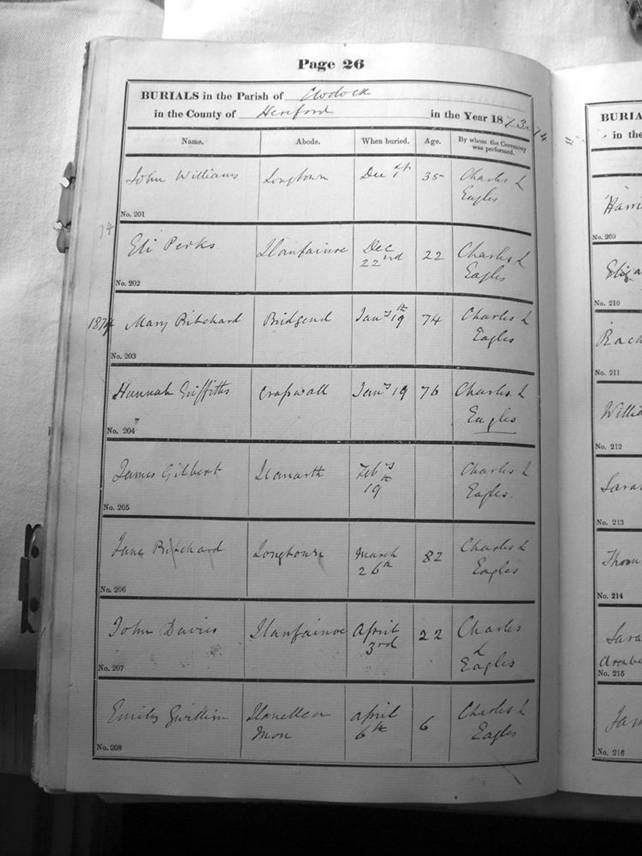 Page 26
BURIALS in the Parish of Clodock
in the County of Hereford in the Year 1873-74
Name. Abode. When buried. Age. By whom the Ceremony was performed.
John Williams Longtown Dec 35 Charles L
Eagles
No. 201
Eli Perks Llanfainoe Dec 22nd 22 Charles L
Eagles
No. 202
1874 Mary Pritchard Bridgend Jany 19th 74 Charles L
Eagles
No. 203
Hannah Griffiths Craswall Jany 19 76 Charles L
Eagles
No. 204
James Gilbert Feby 19th Charles L
Eagles.
No. 205
Jane Pritchard Longtown March 26th 82 Charles L
Eagles
No. 206
John Davies Llanfainoe April 3rd 22 Charles
L
Eagles
No. 207
Emily April 6th 6 Charles L
Mon Eagles
No. 208
BURIA
in the
No. 209
No. 210
No. 211
Willia
No. 212
Sara
No. 213
Thom
No. 214
Sara
No. 215
Jam
No. 216